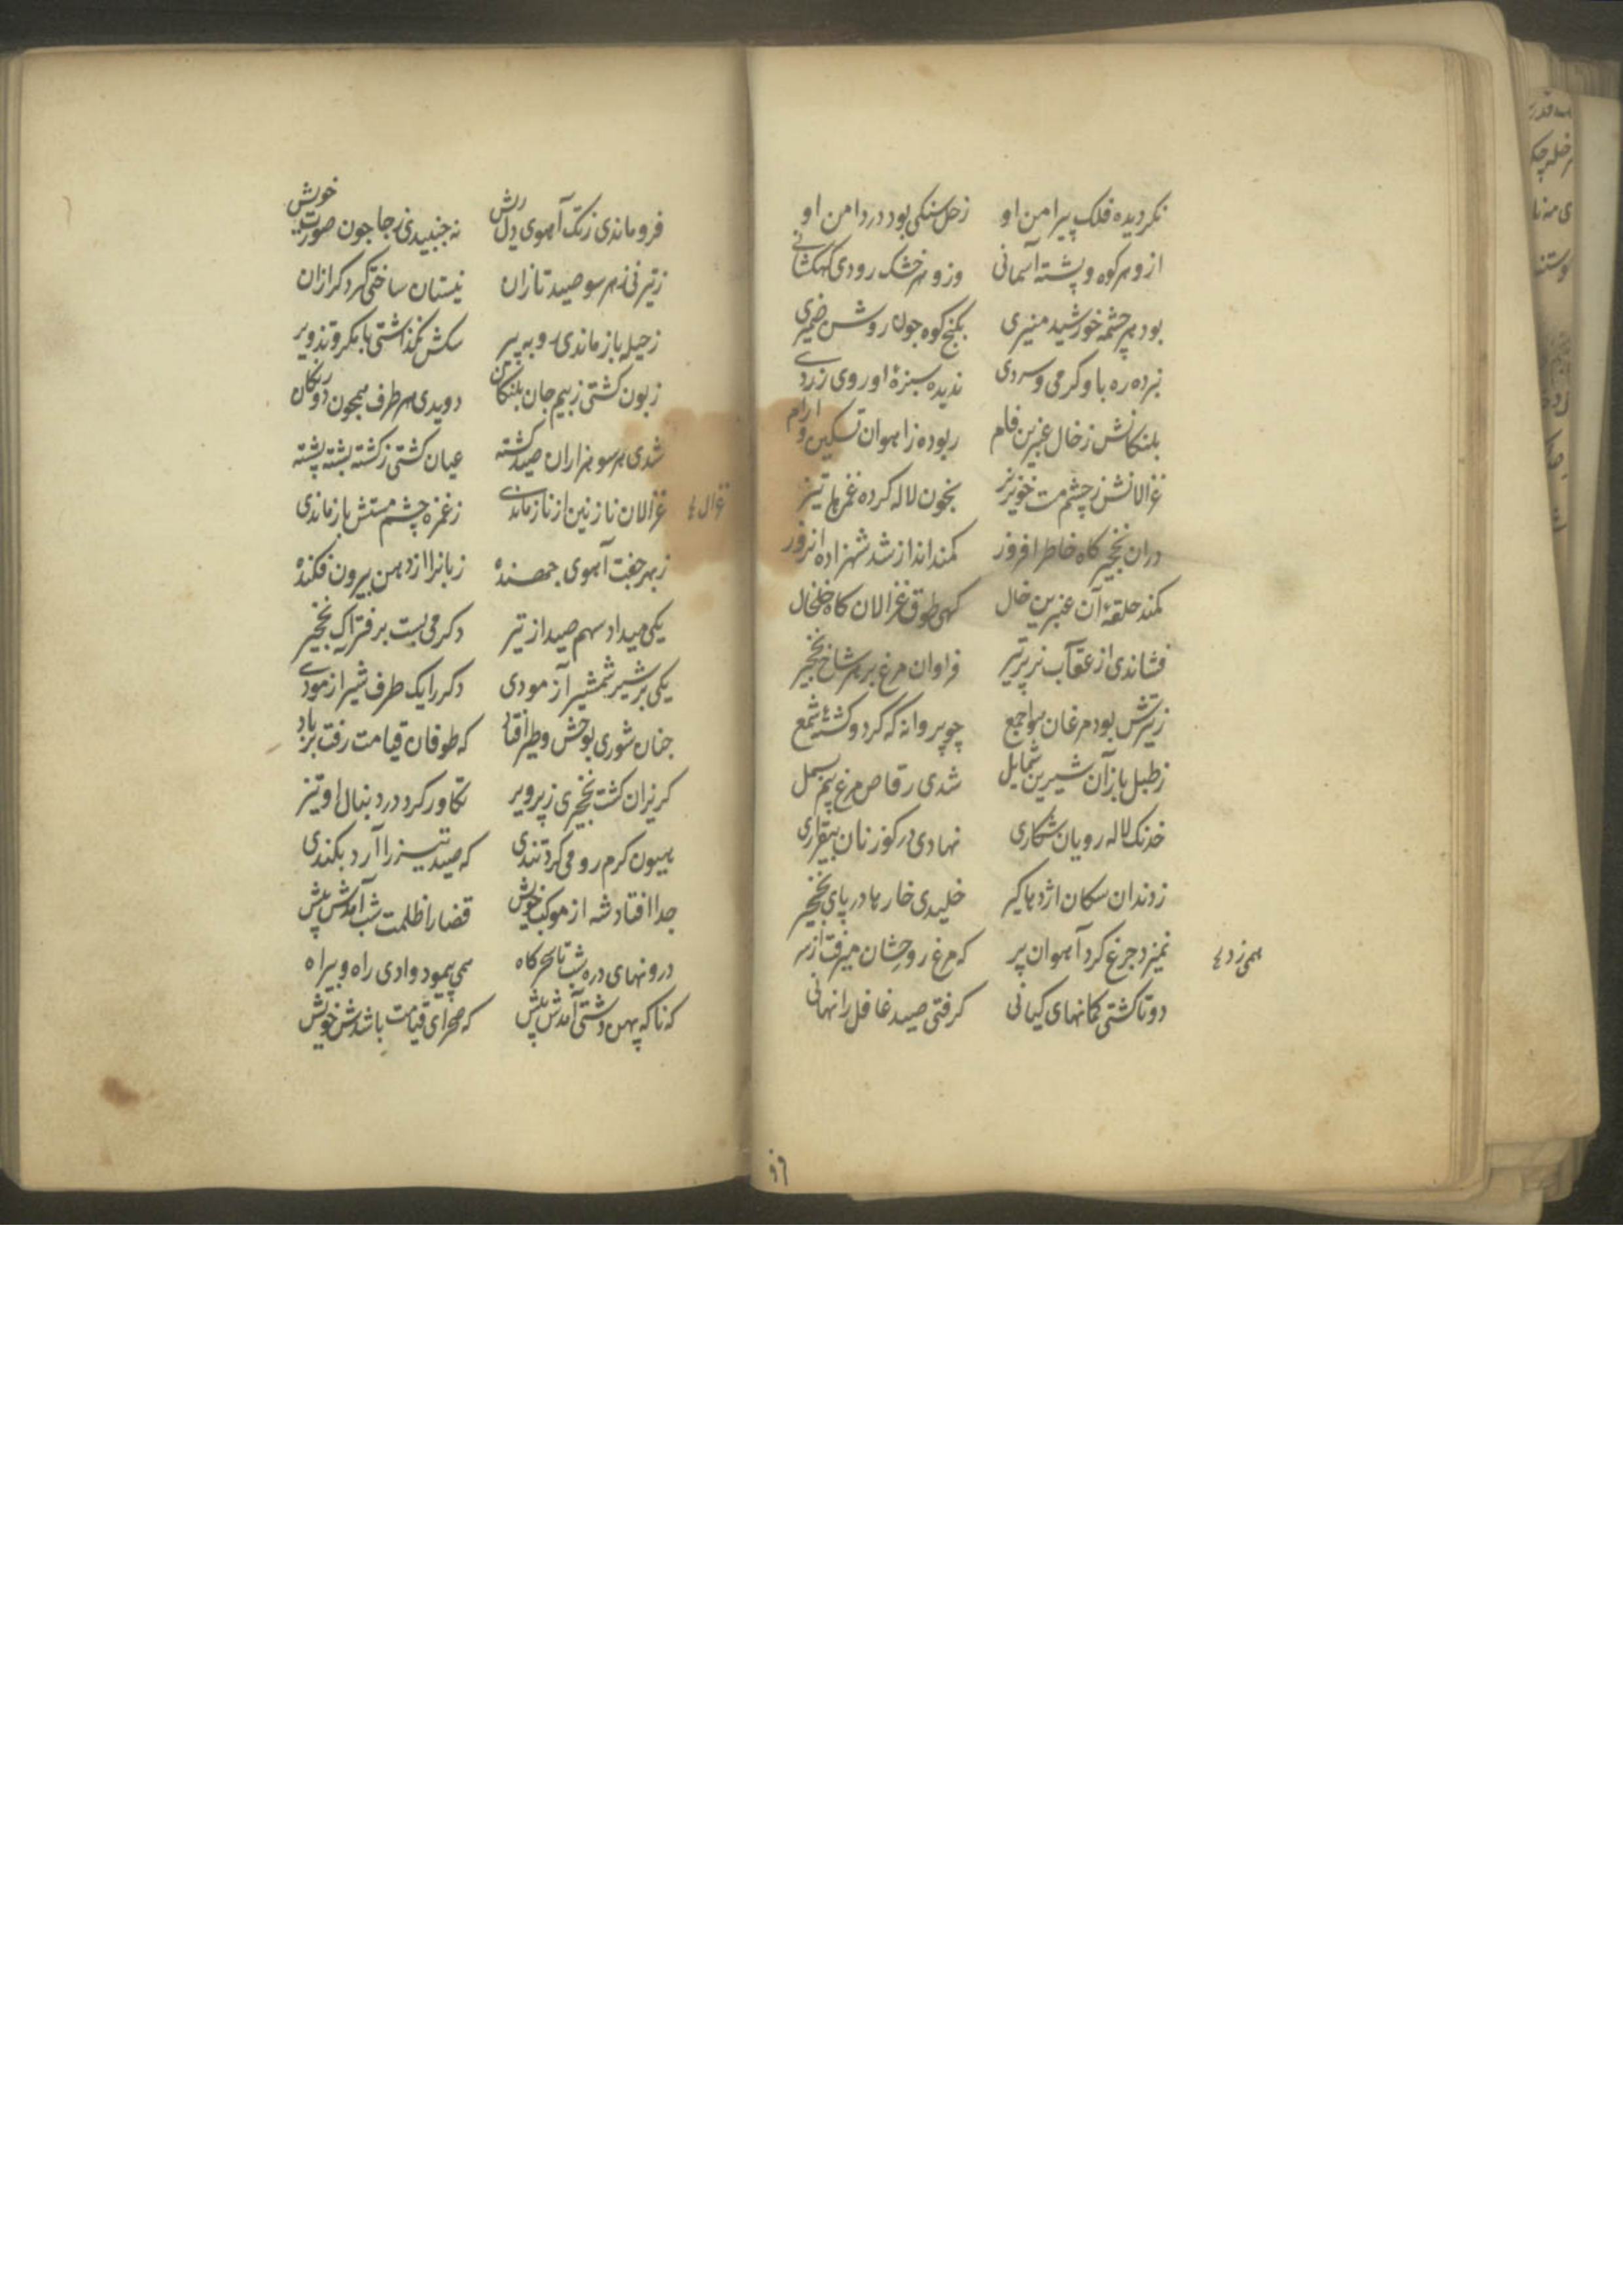 نکردیده فلک پیرامن او زحل سنکی بود در دامن او
ازو هر کوه و پشته آسمانی وزو هر خشک رودی کهکشانی
بود هر چشمه خورشید منیری بکنج کوه جون روشن ضمیری
نبرده ره باو کرمی و سردی ندیده سبزهٔ او روی زردی
بلنکانش ز خال عنبرین فام ربوده ز اهوان تسکین و ارام
غزالانش ز چشم مست خونریز بخون لاله کرده غمزها تیز
دران نخجیر کاه خاطر افروز کمند انداز شد شهزاده انروز
کمند حلقهٔ آن عنبرین خال کهی طوق غزالان کاه خلخال
فشاندی از عقاب نر پر تیر فراوان مرغ بر هر شاخ نخجیر
ز تیرش بود مرغان هوا جمع چو پروانه که کرد کشتهٔ شمع
ز طبل باز آن شیرین شمایل شدی رقاص مرغ نیم بسمل
خدنک لاله رویان شکاری نهادی در کوزنان بیقراری
ز دندان سکان اژدها کیر خلیدی خارها در پای نخجیر
نمیزد جرغ کرد آهوان پر که مرغ روحشان میرفت از سر
همی زد
دوتا کشتی کمانهای کیانی کرفتی صید غافل را نهانی
فرو ماندی ز تک آهوی دلریش نه جنبیدی ز جا جون صورت خویش
ز تیر نی ز هر سو صید تازان نیستان ساختی کرد کرازان
ز حیله باز ماندی روبه پیر سکش نکذاشتی با مکر و تزویر
زبون کشتی ز بیم جان بلنکان دویدی هر طرف همچون دورنکان
شدی هر سو هزاران صید کشته عیان کشتی ز کشته پشته پشته
غزالان نازنین از ناز ماندی ز غمزه چشم مستش باز ماندی
غزال
ز بهر جفت آهوی جهنده زبانرا از دهن بیرون فکنده
یکی میداد سهم صید از تیر دکر می بست بر فتراک نخجیر
یکی بر شیر شمشیر آزمودی دکر را یک طرف شیر ازمودی
جنان شوری بوحش و طیر افتاد که طوفان قیامت رفت بر باد
کریزان کشت نخجیری ز پرویز تکاور کرد در دنبال او تیز
هیون کرم رو می کرد تندی که صید تیز را آرد بکندی
جدا افتاد شه از موکب خویش قضا را ظلمت شب آمدش پیش
درونهای دره شب تا سحرکاه همی پیمود وادی راه و بیراه
که ناکه پهن دشتی آمدش پیش که صحرای قیامت باشدش خویش